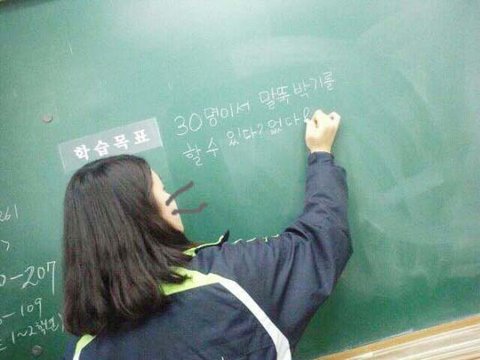 학습목표
30명이서 말뚝박기를
할 수 있다? 없다
261
0-207
-109
1~2학년